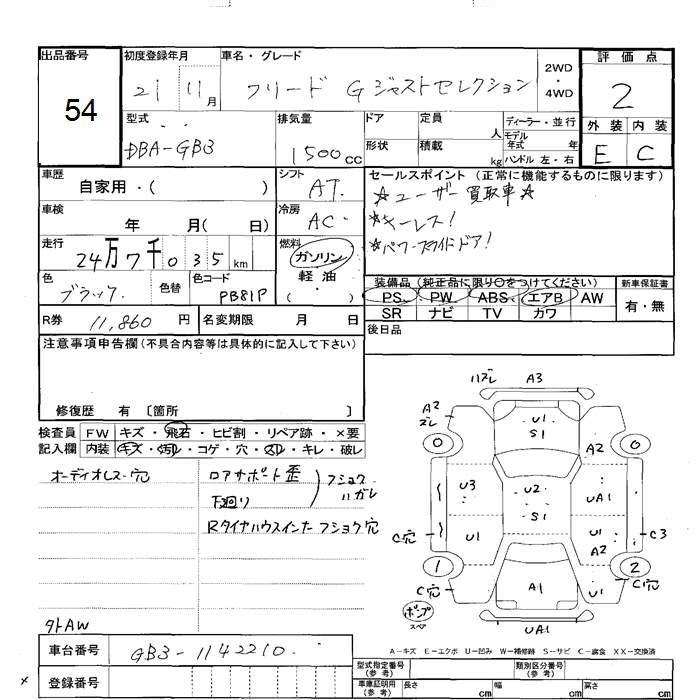 出品番号
54
初度登録年月
21 11月
車名・グレード
フリード G ジャストセレクション
2WD
・
4WD
評価点
2
型式
DBA-GB3
排気量
1500cc
ドア
定員 人
ディーラー・並行
形状
積載 kg
モデル年式 年
ハンドル 左・右
外装 内装
E C
車歴
自家用・( )
シフト
AT
セールスポイント (正常に機能するものに限ります)
☆ユーザー買取車☆
*キーレス!
*パワースライドドア!
車検
年 月( 日)
冷房
AC
走行
24万7千035km
燃料
ガソリン
軽油
( )
色
ブラック
色替
色コード
PB81P
装備品(純正品に限り○をつけてください)
新車保証書
PS PW ABS エアB AW
SR ナビ TV カワ
有・無
R券 11,860円
名変期限 月 日
後日品
注意事項申告欄(不具合内容等は具体的に記入して下さい)
修復歴 有 〔箇所 〕
検査員 FW キズ・飛石・ヒビ割・リペア跡・×要
記入欄 内装 キズ・汚れ・コゲ・穴・スリ・キレ・破レ
オーディオレス・穴
ロアサポート歪
下廻り
フショク
ハガレ
Rタイヤハウスインナーフショク穴
外AW
ハズレ A3
A2
ズレ
U1
S1
0
0
A2
U3
U2
UA1
S1
C穴
U1
U1
A2
C3
1
2
C穴
A1
U1
C穴
ポンプ
スペア
UA1
A-キズ E-エクボ U-凹み W-補修跡 S-サビ C-腐食 XX-交換済
車台番号
GB3-1142210
登録番号
型式指定番号
(参考)
類別区分番号
(参考)
車庫証明用
(参考)
長さ cm
幅 cm
高さ cm